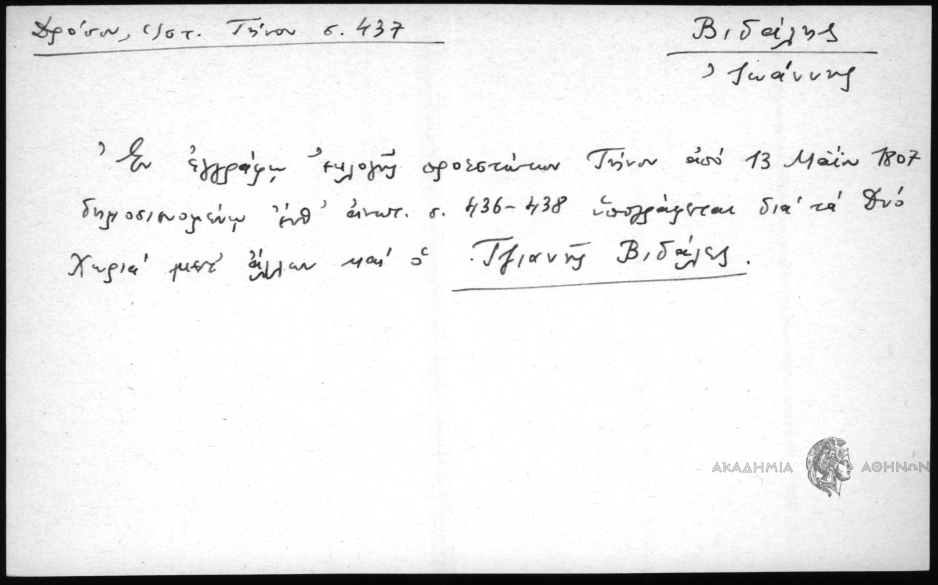 Δρόσου, Ιστ. Τήνου σ. 437
Βιδάλης
Ἰωάννης
Ἐν ἐγγράφῳ ἐκλογῆς προεστώτων Τήνου ἀπό 13 Μαΐου 1807
δημοσιευομένῳ ἔνθ' ἀνωτ. σ. 436-438 ὑπογράφεται διά τά Δυό
Χωριά μετ' ἄλλων καί ὁ Τζιαννῆς Βιδάλες.
ΑΚΑΔΗΜΙΑ ΑΘΗΝΩΝ